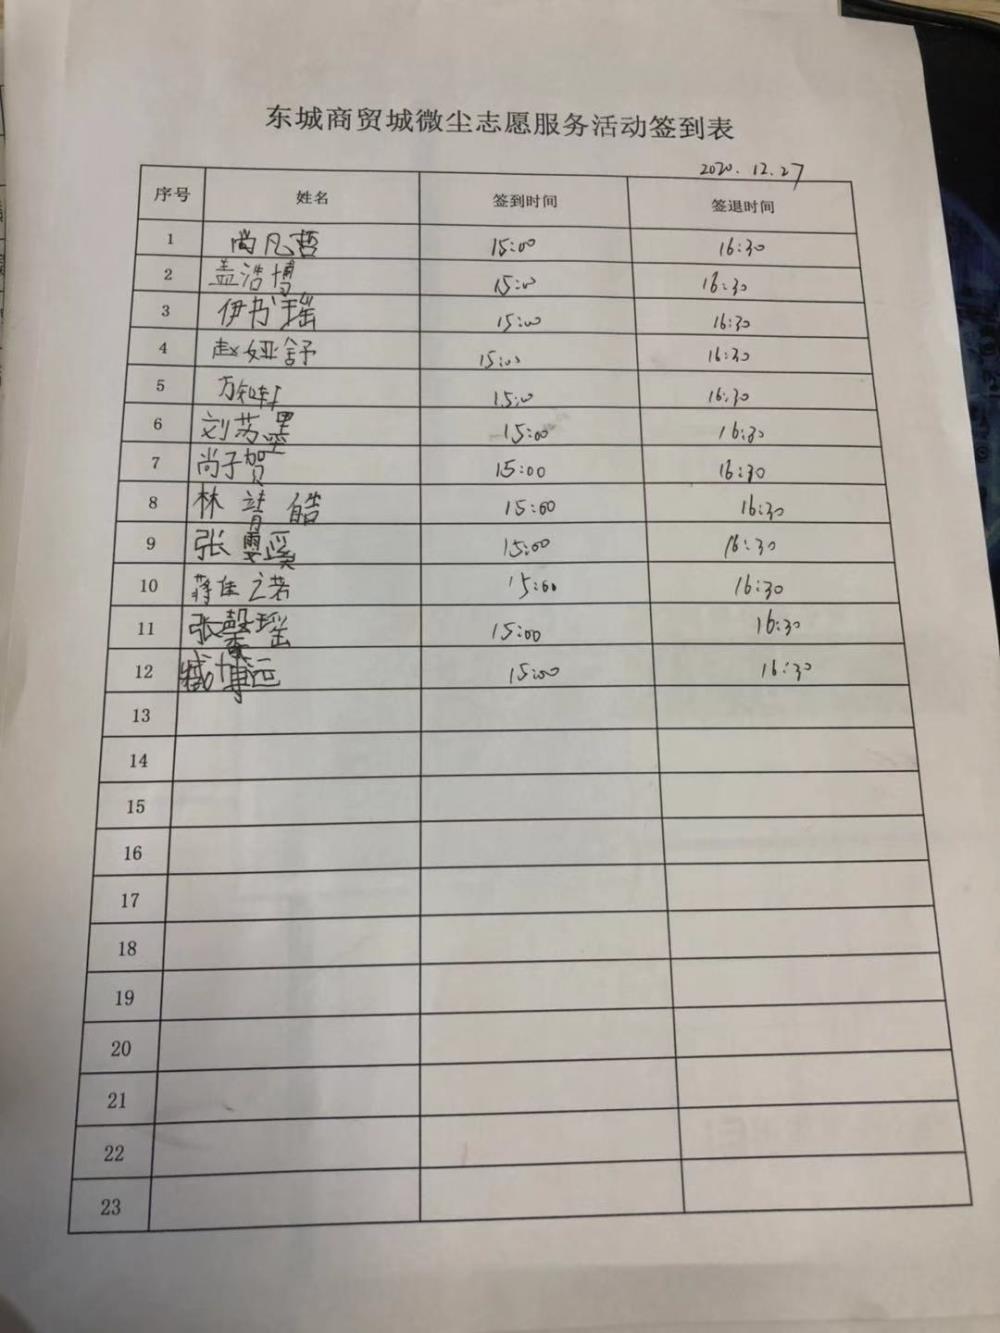 东城商贸城微尘志愿服务活动签到表
2020.12.27
序号 姓名 签到时间 签退时间
1 尚凡哲 15:00 16:30
2 孟浩博 15:00 16:30
3 伊书瑶 15:00 16:30
4 赵娅舒 15:00 16:30
5 万知轩 15:00 16:30
6 刘芳墨 15:00 16:30
7 尚子贺 15:00 16:30
8 林靖皓 15:00 16:30
9 张雯溪 15:00 16:30
10 蒋佳之若 15:00 16:30
11 张馨瑶 15:00 16:30
12 臧博远 15:00 16:30
13
14
15
16
17
18
19
20
21
22
23